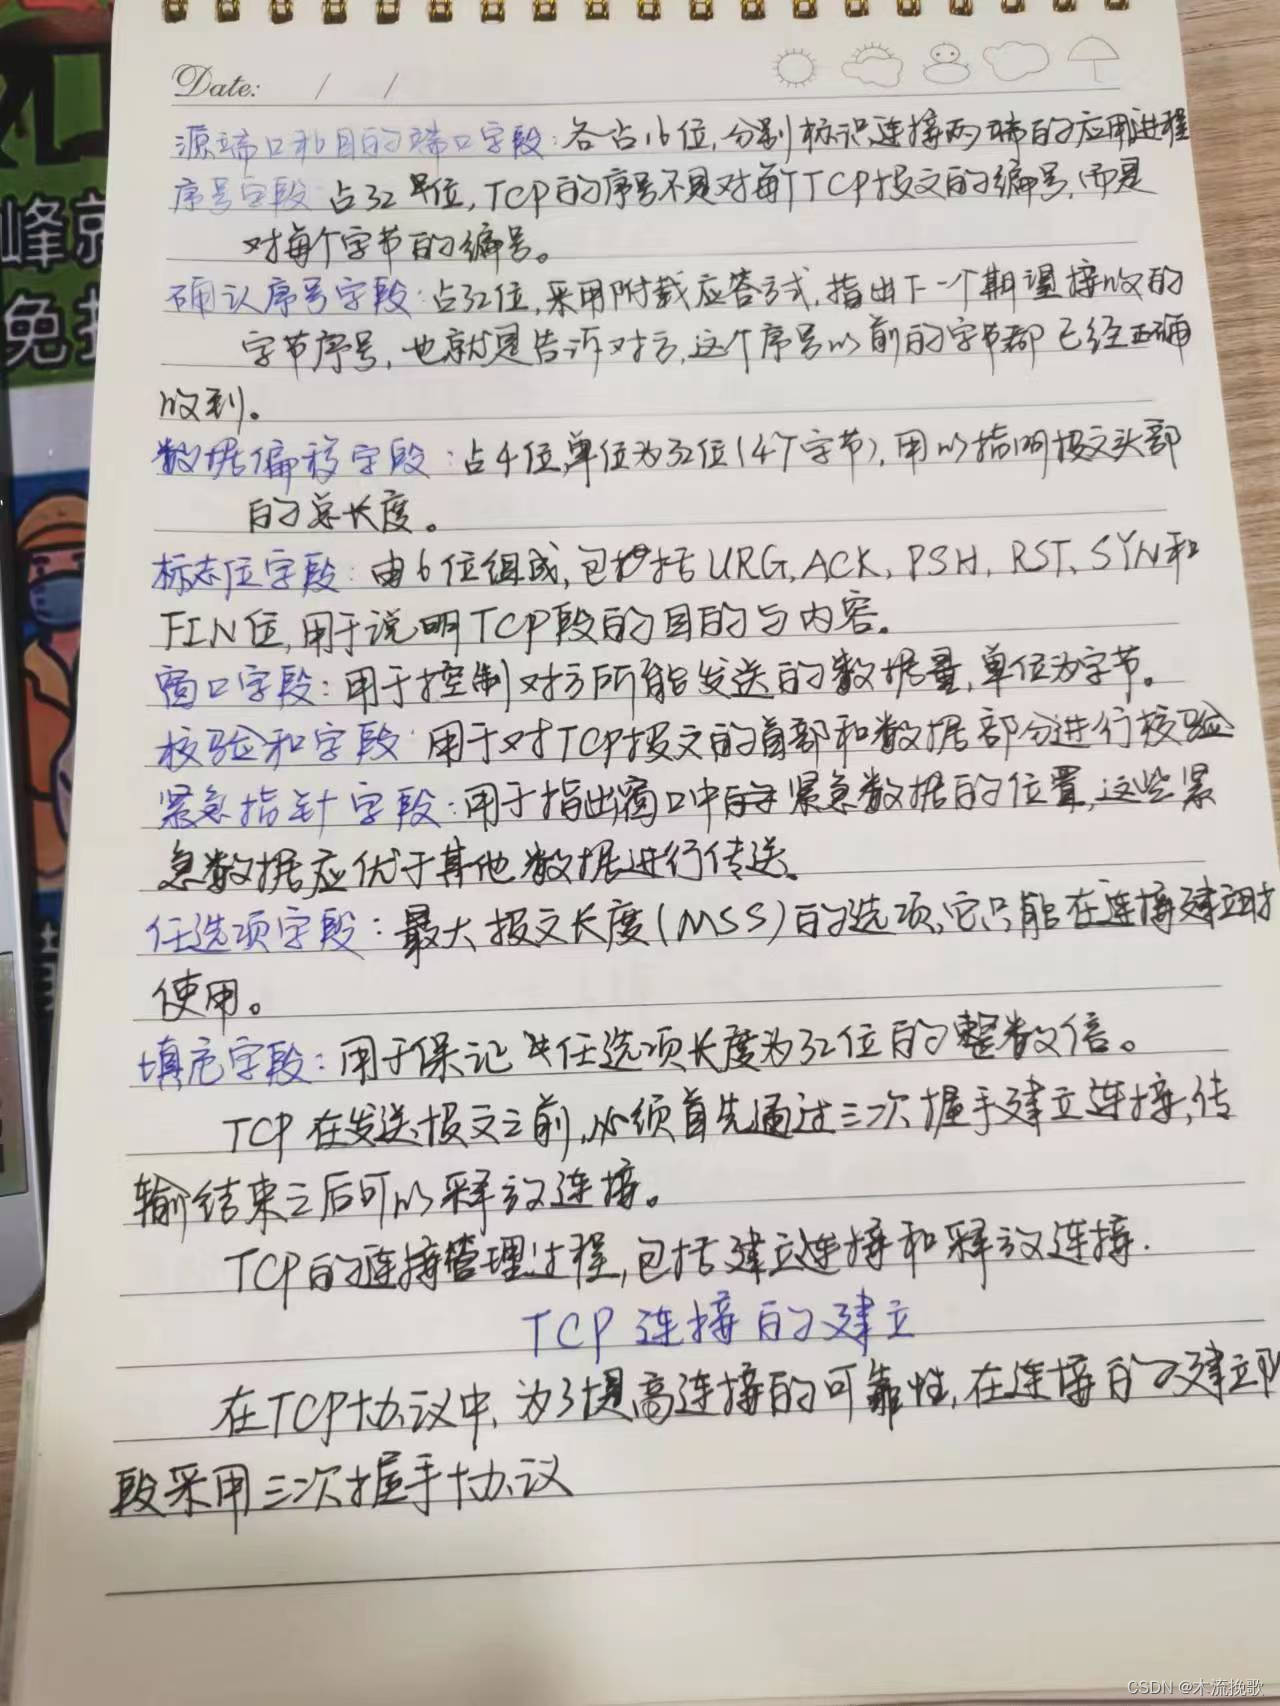 Date: / /
源端口和目的端口字段: 各占16位, 分别标识连接两端的应用进程
序号字段: 占32位, TCP的序号不是对每个TCP报文的编号, 而是
对每个字节的编号。
确认序号字段: 占32位, 采用附载应答方式, 指出下一个期望接收的
字节序号, 也就是告诉对方, 这个序号以前的字节都已经正确
收到。
数据偏移字段: 占4位, 单位为32位(4个字节), 用以指明报文头部
的总长度。
标志位字段: 由6位组成, 包括URG, ACK, PSH, RST, SYN和
FIN位, 用于说明TCP段的目的与内容。
窗口字段: 用于控制对方所能发送的数据量, 单位为字节。
校验和字段: 用于对TCP报文的首部和数据部分进行校验
紧急指针字段: 用于指出窗口中的紧急数据的位置, 这些紧
急数据应优于其他数据进行传送。
任选项字段: 最大报文长度(MSS)的选项, 它只能在连接建立时
使用。
填充字段: 用于保记任选项长度为32位的整数倍。
TCP在发送报文之前, 必须首先通过三次握手建立连接, 传
输结束之后可以释放连接。
TCP的连接管理过程, 包括建立连接和释放连接.
TCP连接的建立
在TCP协议中, 为了提高连接的可靠性, 在连接的建立阶
段采用三次握手协议
峰就
免
CSDN @木流挽歌